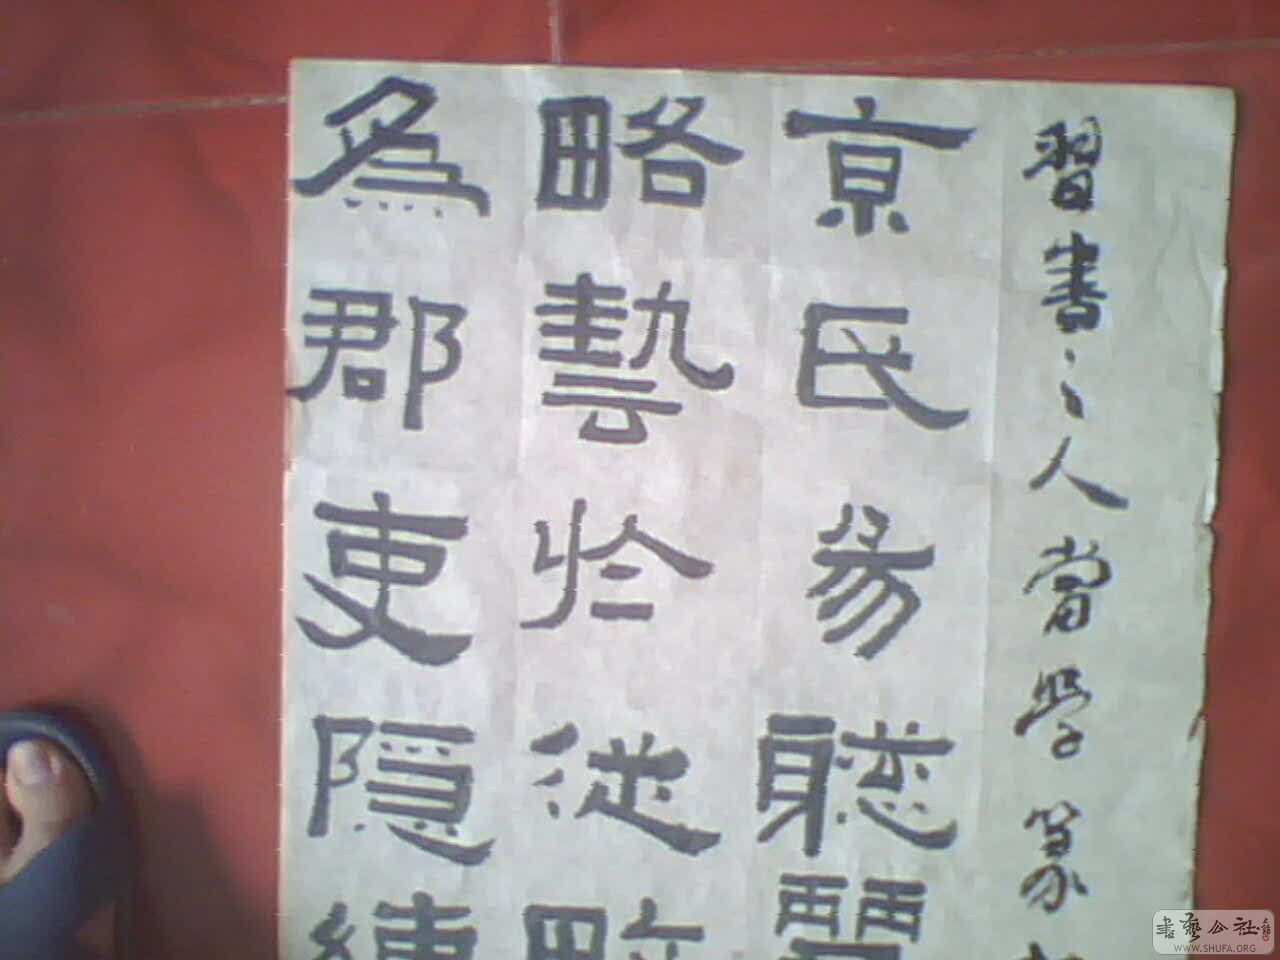 習書之人當學篆
京氏易聰麗
略藝於從畋
爲郡吏隱練
書藝公社
WWW.SHUFA.ORG